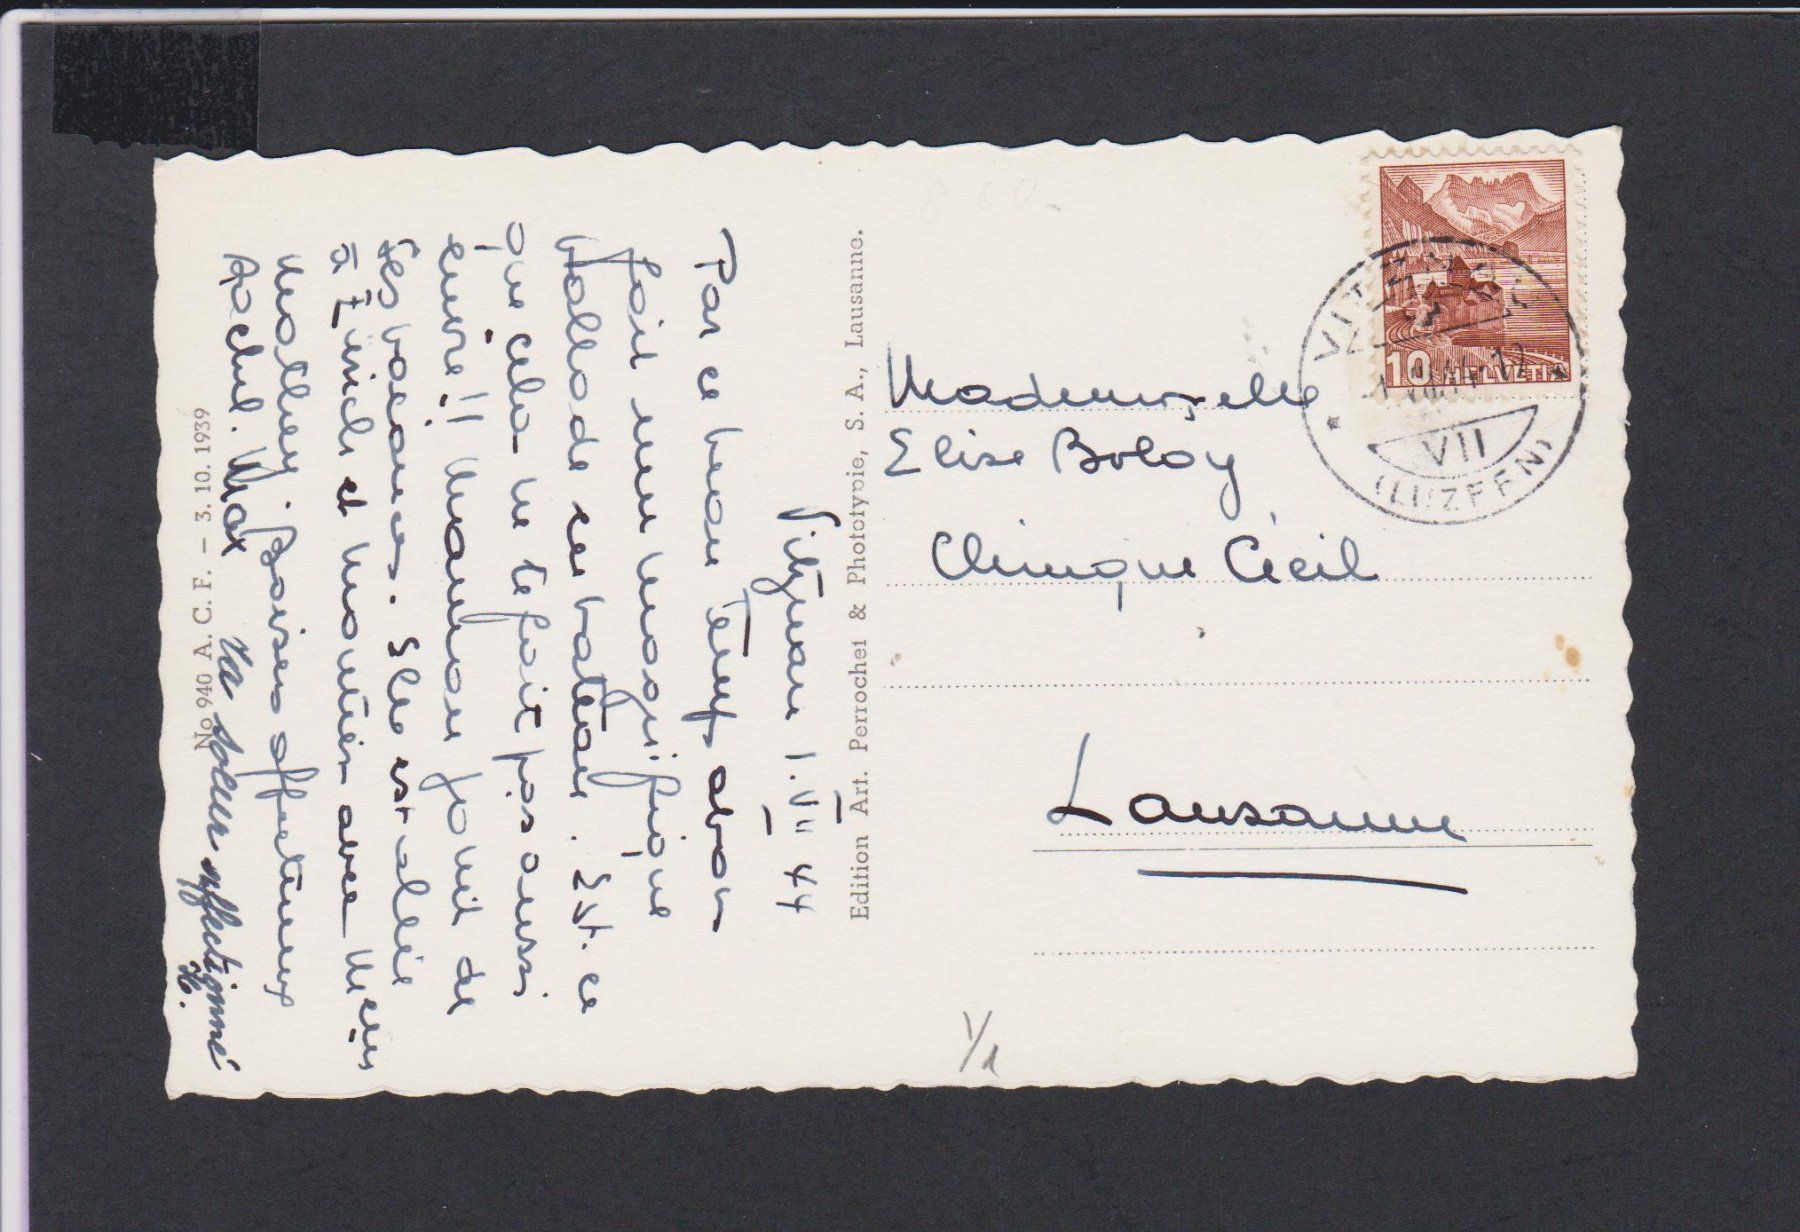 Vitznau 1.VII 44
Par ce beau Temps avons
fait une magnifique
ballade en bateau. Est-ce
que cela ne te fait pas aussi
envie!! Maman jouit de
ses vacances. Elle est allée
à Zürich et Moutier avec Mme
Mathey. Baisers affectueux
Rachel. Max
Ta soeur affectionnée
H.
Edition Art. Perrochet & Phototypie, S. A., Lausanne.
No 940 A. C. F. – 3. 10. 1939
Mademoiselle
Elise
Clinique Cécil
Lausanne
10 HELVETIA
VITZNAU
VII
(LUZERN)
1/1